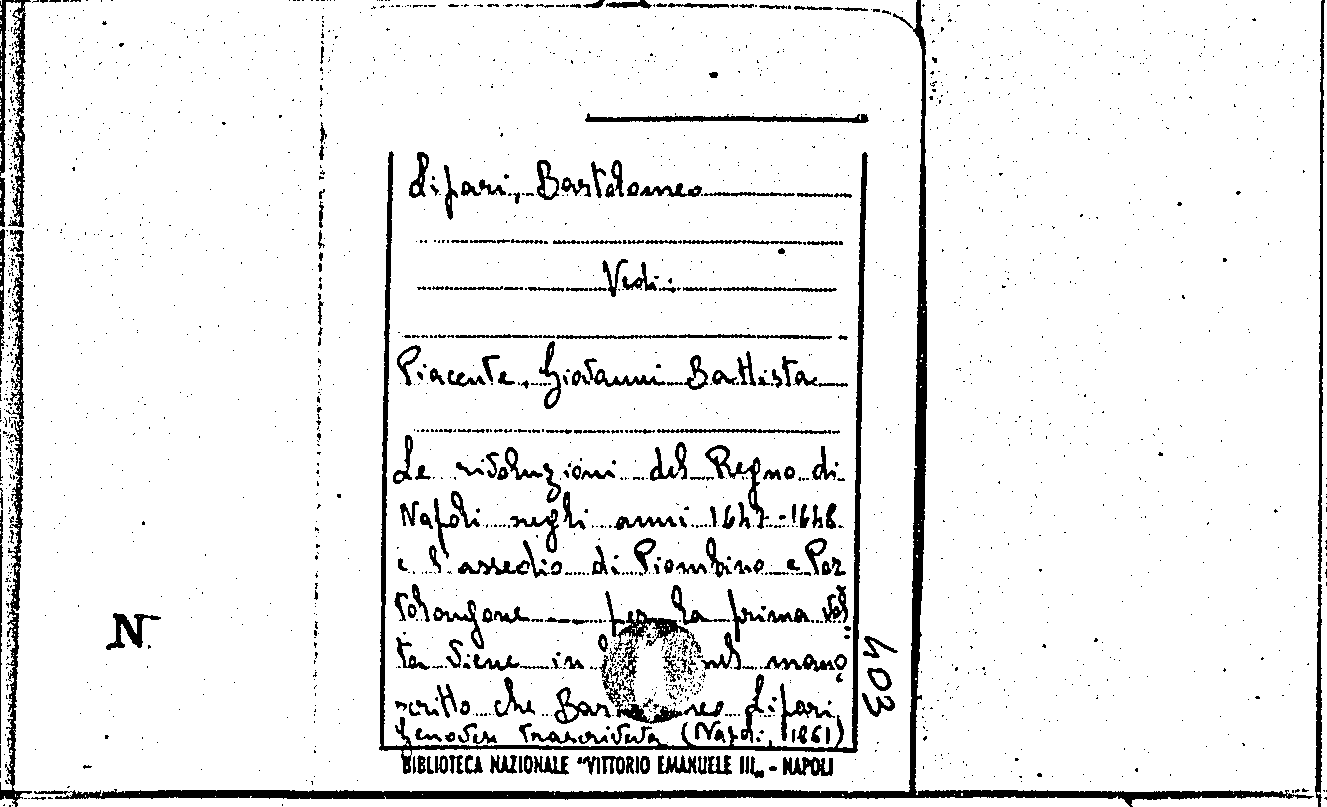 Lipari, Bartolomeo
Vedi:
Piacente, Giovanni Battista
Le rivoluzioni del Regno di
Napoli negli anni 1647-1648
e l'assedio di Piombino e Por
tolongone ___ per la prima vol=
ta viene in nel mano
scritto che Bartolomeo Lipari
Genovese trascriveva (Napoli, 1861)
BIBLIOTECA NAZIONALE "VITTORIO EMANUELE III„ - NAPOLI
N
403